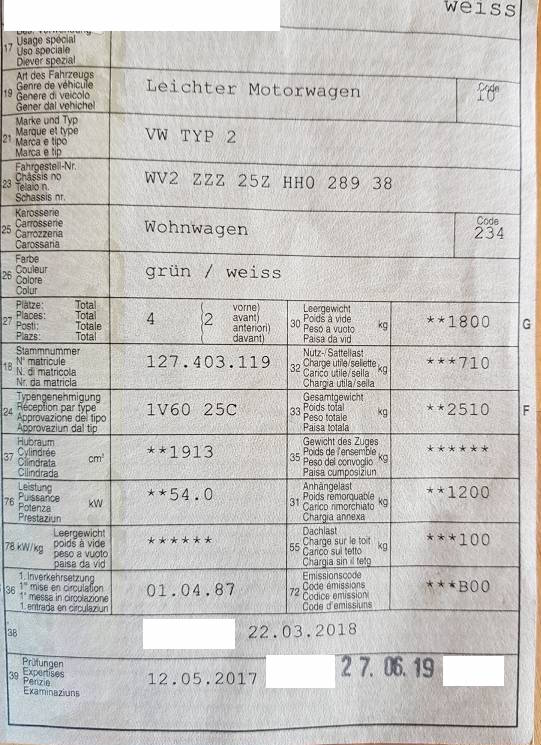 weiss
17 Usage spécial
Uso speciale
Diever spezial
19 Art des Fahrzeugs
Genre de véhicule
Genere di veicolo
Gener dal vehichel
Leichter Motorwagen
Code
10
21 Marke und Typ
Marque et type
Marca e tipo
Marca e tip
VW TYP 2
23 Fahrgestell-Nr.
Châssis no
Telaio n.
Schassis nr.
WV2 ZZZ 25Z HH0 289 38
25 Karosserie
Carrosserie
Carrozzeria
Carossaria
Wohnwagen
Code
234
26 Farbe
Couleur
Colore
Colur
grün / weiss
27 Plätze: Total
Places: Total
Posti: Totale
Plazs: Total
4 (2 vorne)
avant)
anteriori)
davant)
30 Leergewicht
Poids à vide
Peso a vuoto
Paisa da vid
kg
**1800
G
18 Stammnummer
N° matricule
N. di matricola
Nr. da matricla
127.403.119
32 Nutz-/Sattellast
Charge utile/sellette
Carico utile/sella
Chargia utila/sella
kg
***710
24 Typengenehmigung
Réception par type
Approvazione del tipo
Approvaziun dal tip
1V60 25C
33 Gesamtgewicht
Poids total
Peso totale
Paisa totala
kg
**2510
F
37 Hubraum
Cylindrée
Cilindrata
Cilindrada
cm³
**1913
35 Gewicht des Zuges
Poids de l'ensemble
Peso del convoglio
Paisa cumposiziun
kg
******
76 Leistung
Puissance
Potenza
Prestaziun
kW
**54.0
31 Anhängelast
Poids remorquable
Carico rimorchiato
Chargia annexa
kg
**1200
78 kW/kg Leergewicht
poids à vide
peso a vuoto
paisa da vid
******
55 Dachlast
Charge sur le toit
Carico sul tetto
Chargia sin il tetg
kg
***100
36 1. Inverkehrsetzung
1re mise en circulation
1a messa in circolazione
1. entrada en circulaziun
01.04.87
72 Emissionscode
Code émissions
Codice emissioni
Code d'emissiuns
***B00
38
22.03.2018
39 Prüfungen
Expertises
Perizie
Examinaziuns
12.05.2017
27. 06. 19